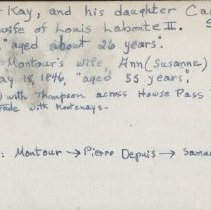 Kay, and his daughter Ca
wife of Louis Labonte II.
"aged about 26 years".
Montour's wife, Ann (Susanne)
ay 18, 1846, "aged 55 years".
with Thompson across Howse Pass
rade with Kootenays.
: Montour → Pierre Depuis → Samu